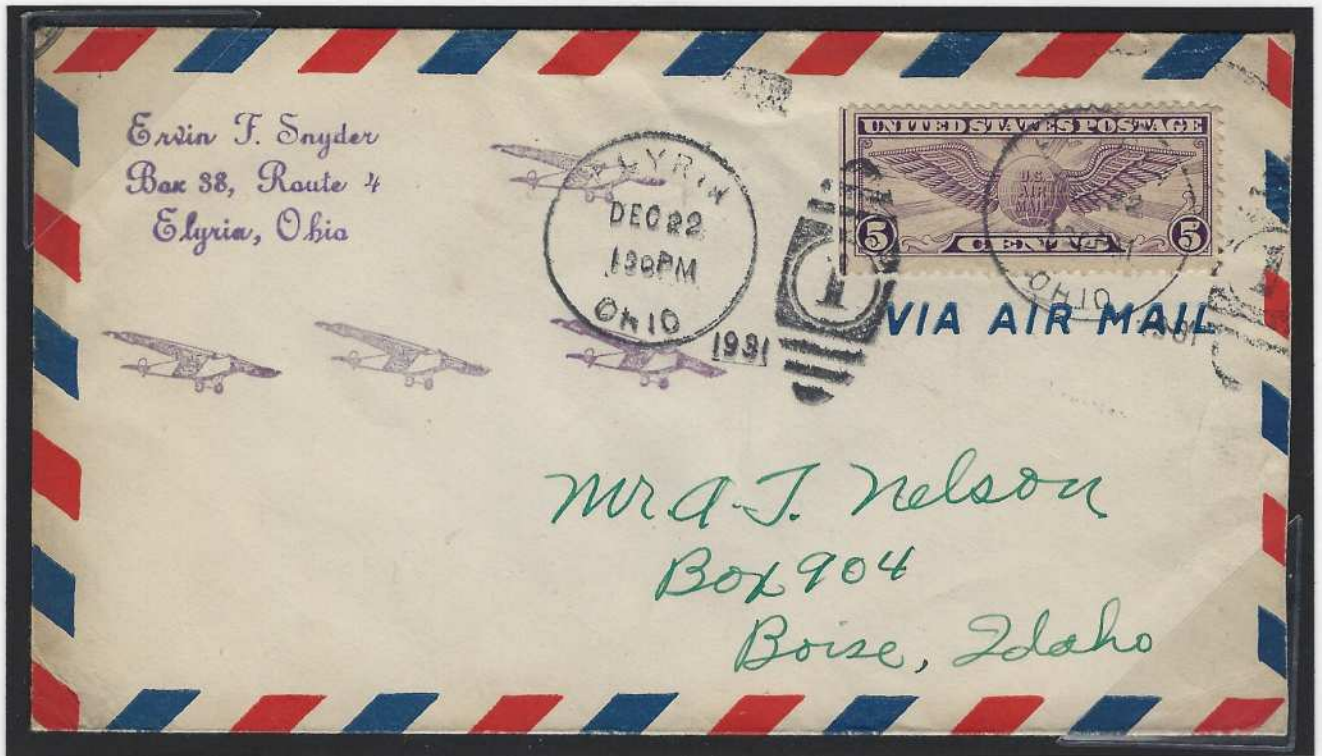 Ervin F. Snyder
Box 38, Route 4
Elyria, Ohio
ELYRIA
DEC 22
130PM
OHIO
1931
1
UNITED STATES POSTAGE
U.S.
AIR
MAIL
5 CENTS 5
22
OHIO
1931
1
VIA AIR MAIL
Mr. A. T. Nelson
Box 904
Boise, Idaho